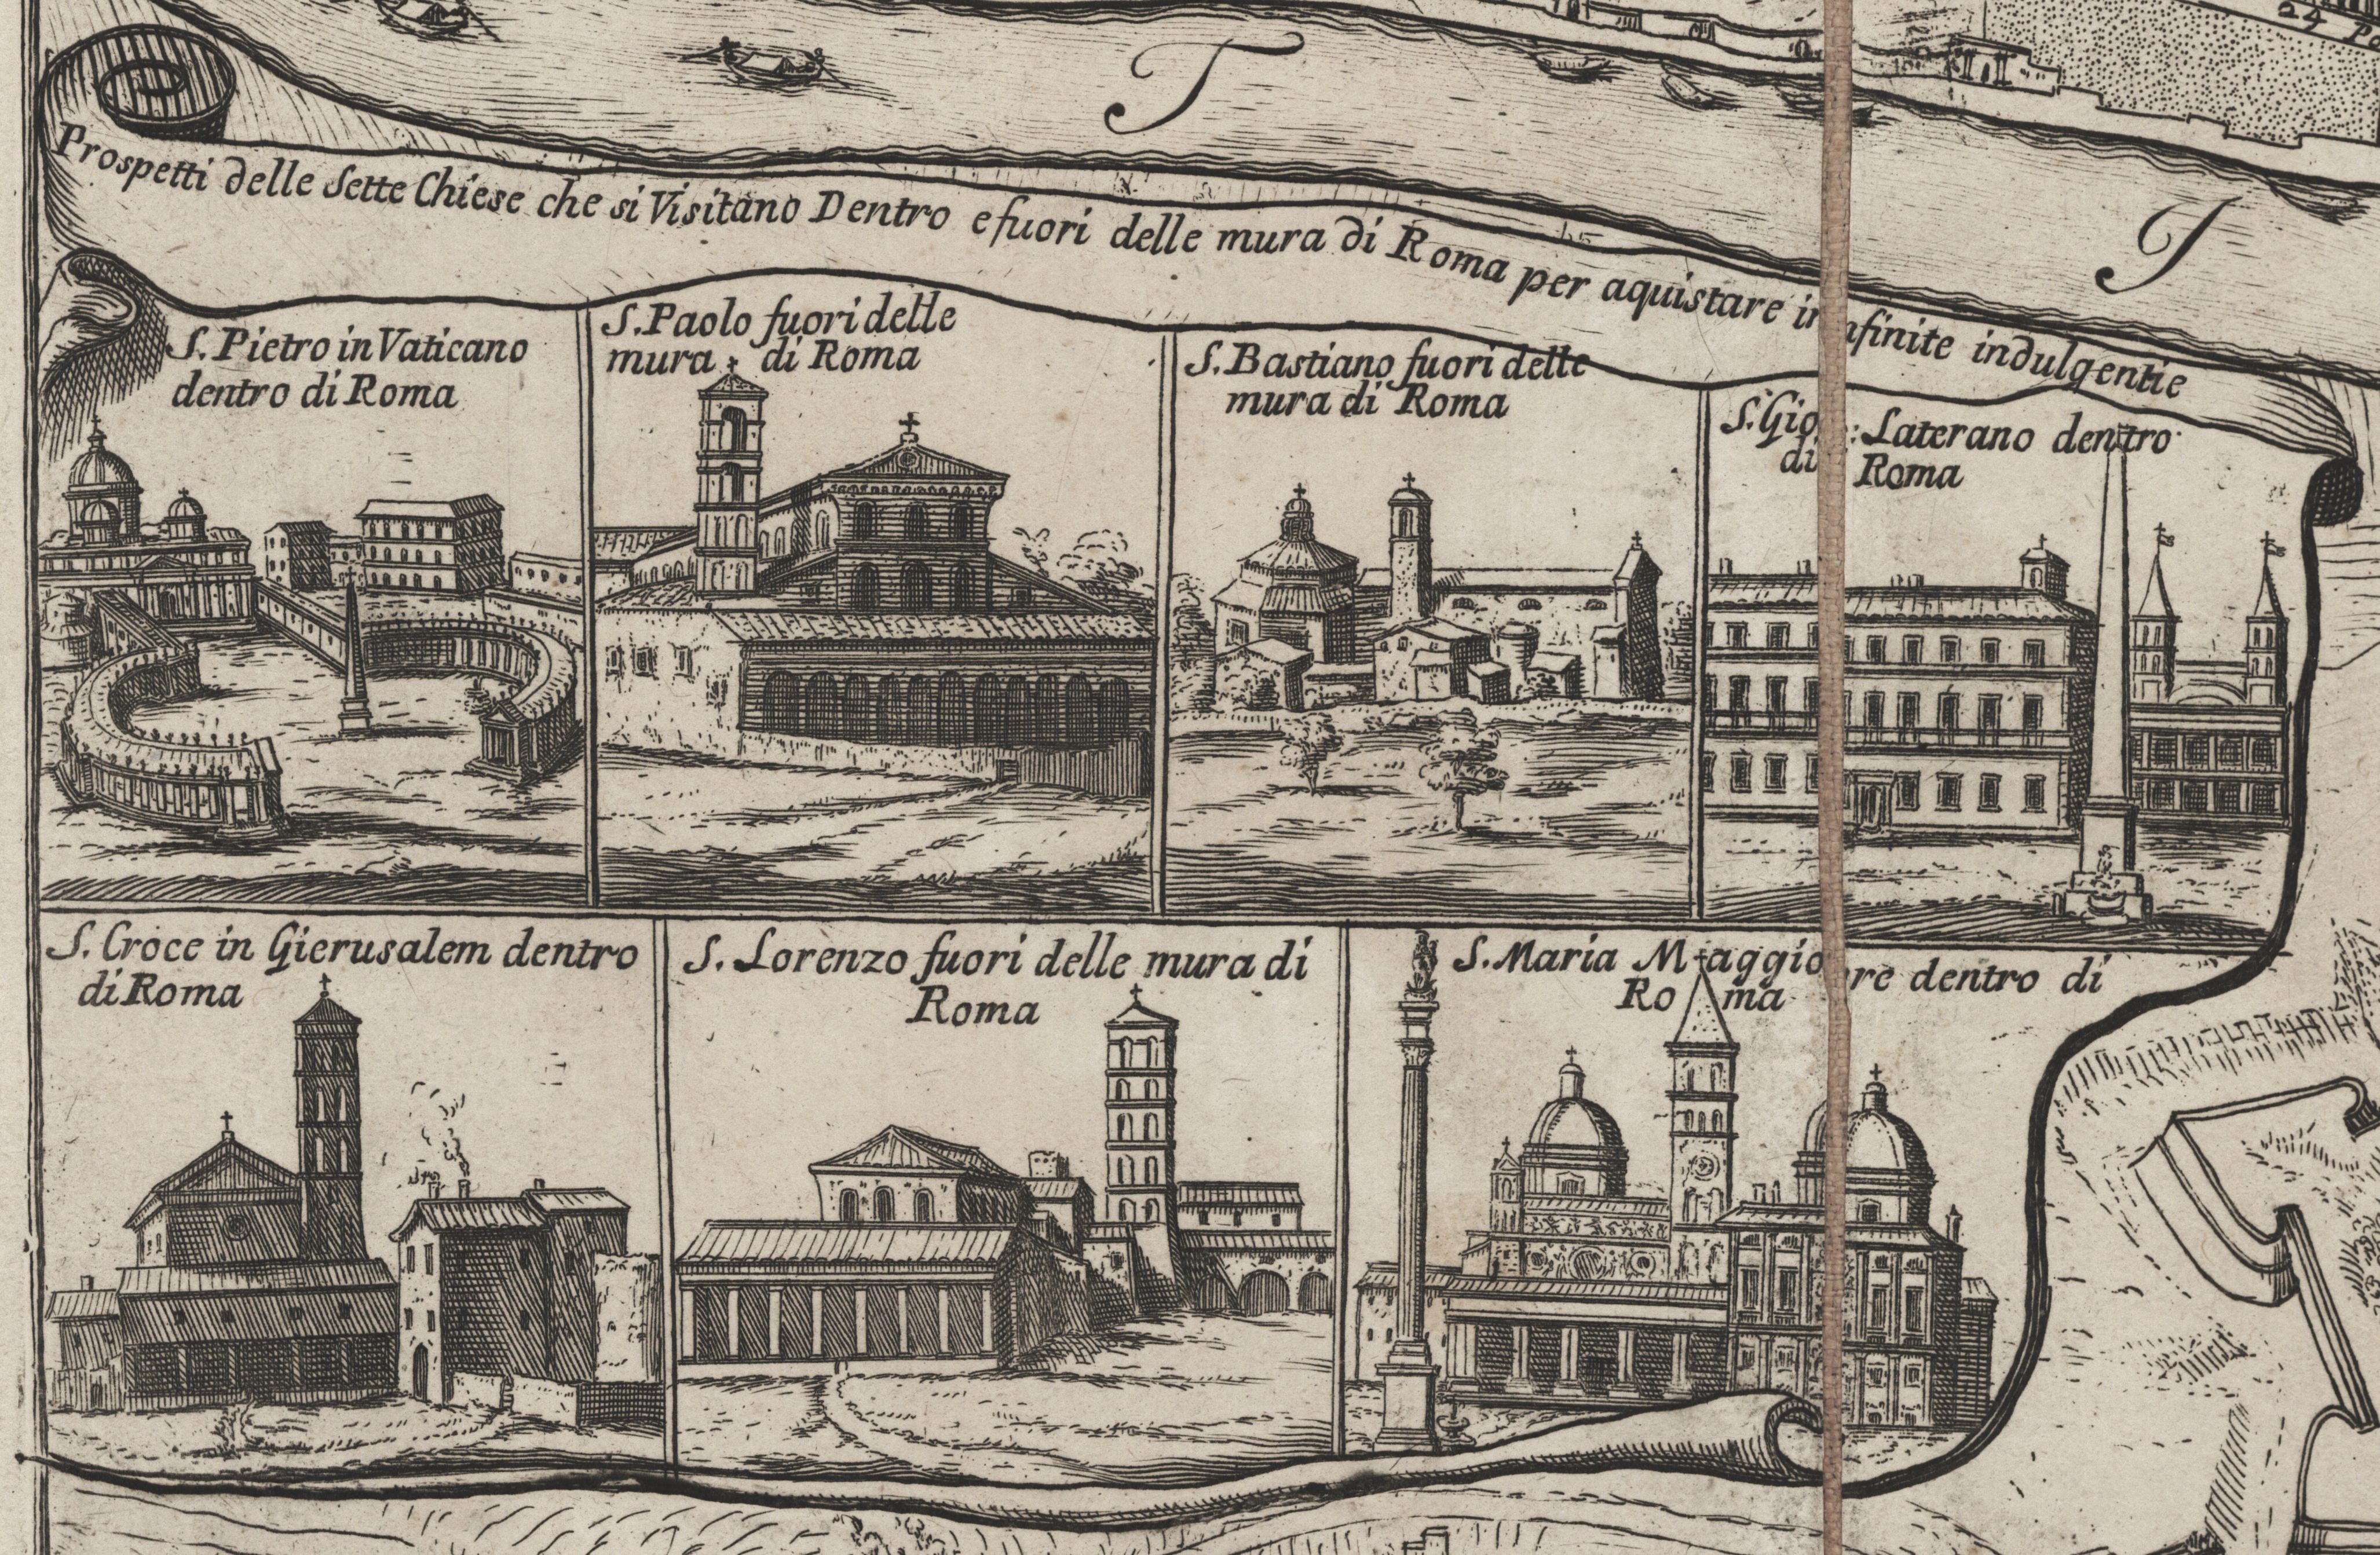 T
24
I
Prospetti delle Sette Chiese che si Visitano Dentro e fuori delle mura di Roma per aquistare infinite indulgentie
S. Pietro in Vaticano
dentro di Roma
S. Paolo fuori delle
mura di Roma
S. Bastiano fuori delle
mura di Roma
S. Gio: Laterano dentro
di Roma
S. Croce in Gierusalem dentro
di Roma
S. Lorenzo fuori delle mura di
Roma
S. Maria Maggiore dentro di
Roma